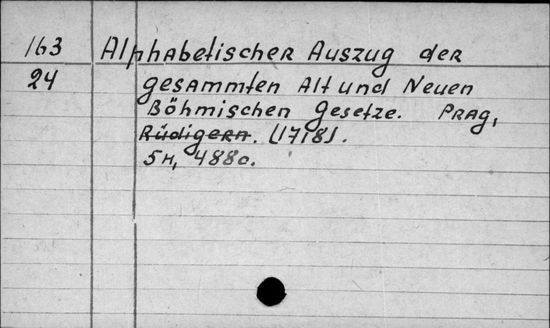 163 Alphabetischer Auszug der
24 gesammten Alt und Neuen
Böhmischen Gesetze. Prag,
Rüdigern. [1718].
5н, 488с.